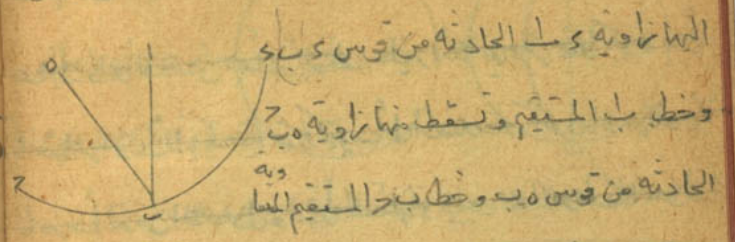 اليها زاوية ء ب ا الحادثه من قوس ء ب
وخط ب ا المستقيم وتسقط منها زاوية ه ب ح
الحادثه من قوس ه ب وخط ب ح المستقيم المسا
وية
ه
ا
ء
ح
ب